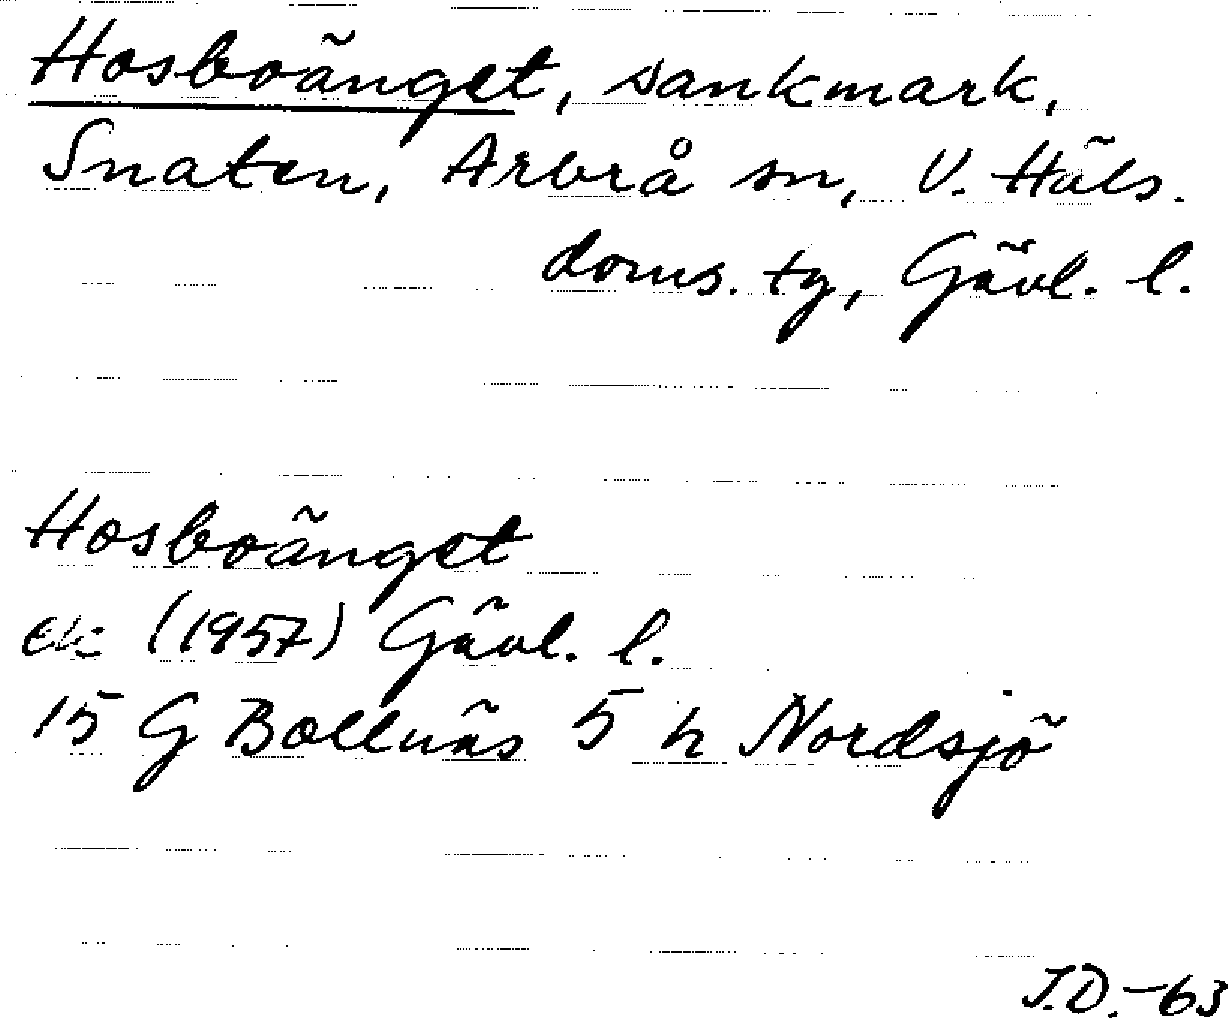 Hosboänget, sankmark,
Snaten, Arbrå sn, V. Häls.
doms. tg, Gävl. l.
Hosboänget
ek (1957) Gävl. l.
15 G Bollnäs 5 h Nordsjö
J.D.-63